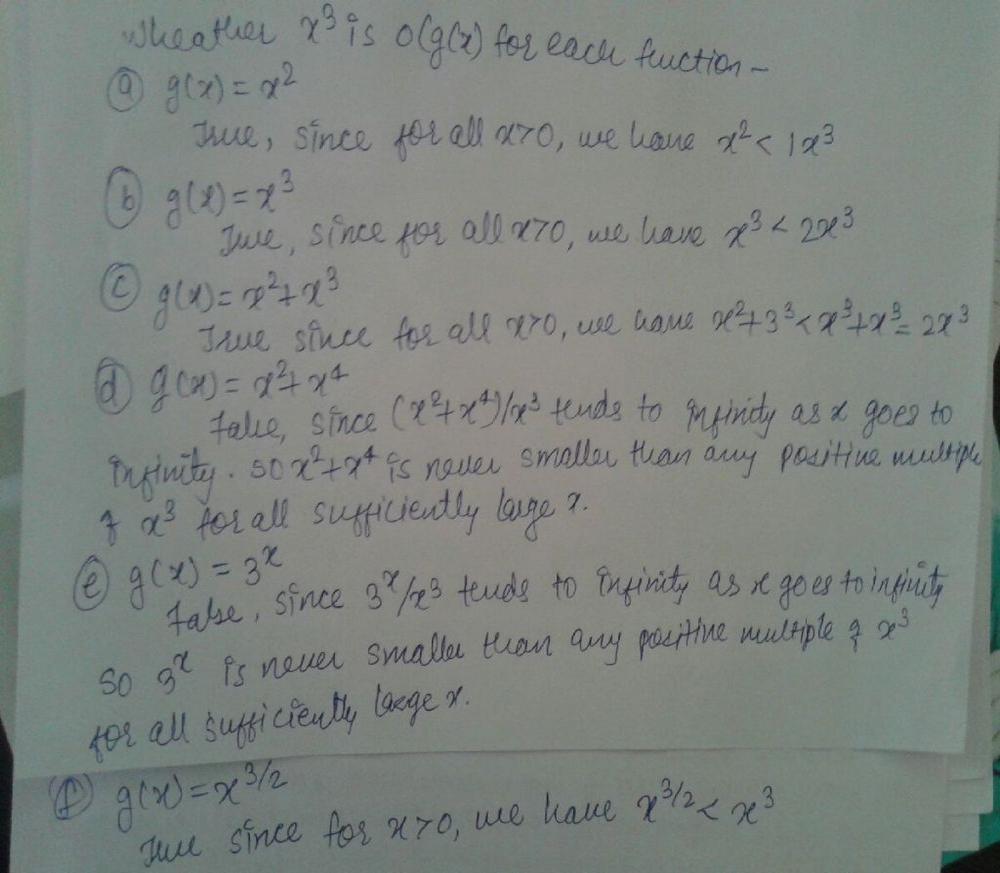 Wheather x³ is O(g(x) for each function –
(a) g(x) = x²
True, since for all x>0, we have x² < 1x³
(b) g(x) = x³
True, since for all x>0, we have x³ < 2x³
(c) g(x) = x²+x³
True since for all x>0, we have x²+3³ < x³+x³ = 2x³
(d) g(x) = x²+x⁴
False, since (x²+x⁴)/x³ tends to infinity as x goes to
infinity. So x²+x⁴ is never smaller than any positive multiple
of x³ for all sufficiently large x.
(e) g(x) = 3ˣ
False, since 3ˣ/x³ tends to infinity as x goes to infinity
So 3ˣ is never smaller than any positive multiple of x³
for all sufficiently large x.
(f) g(x) = x^3/2
True since for x>0, we have x^3/2 < x³